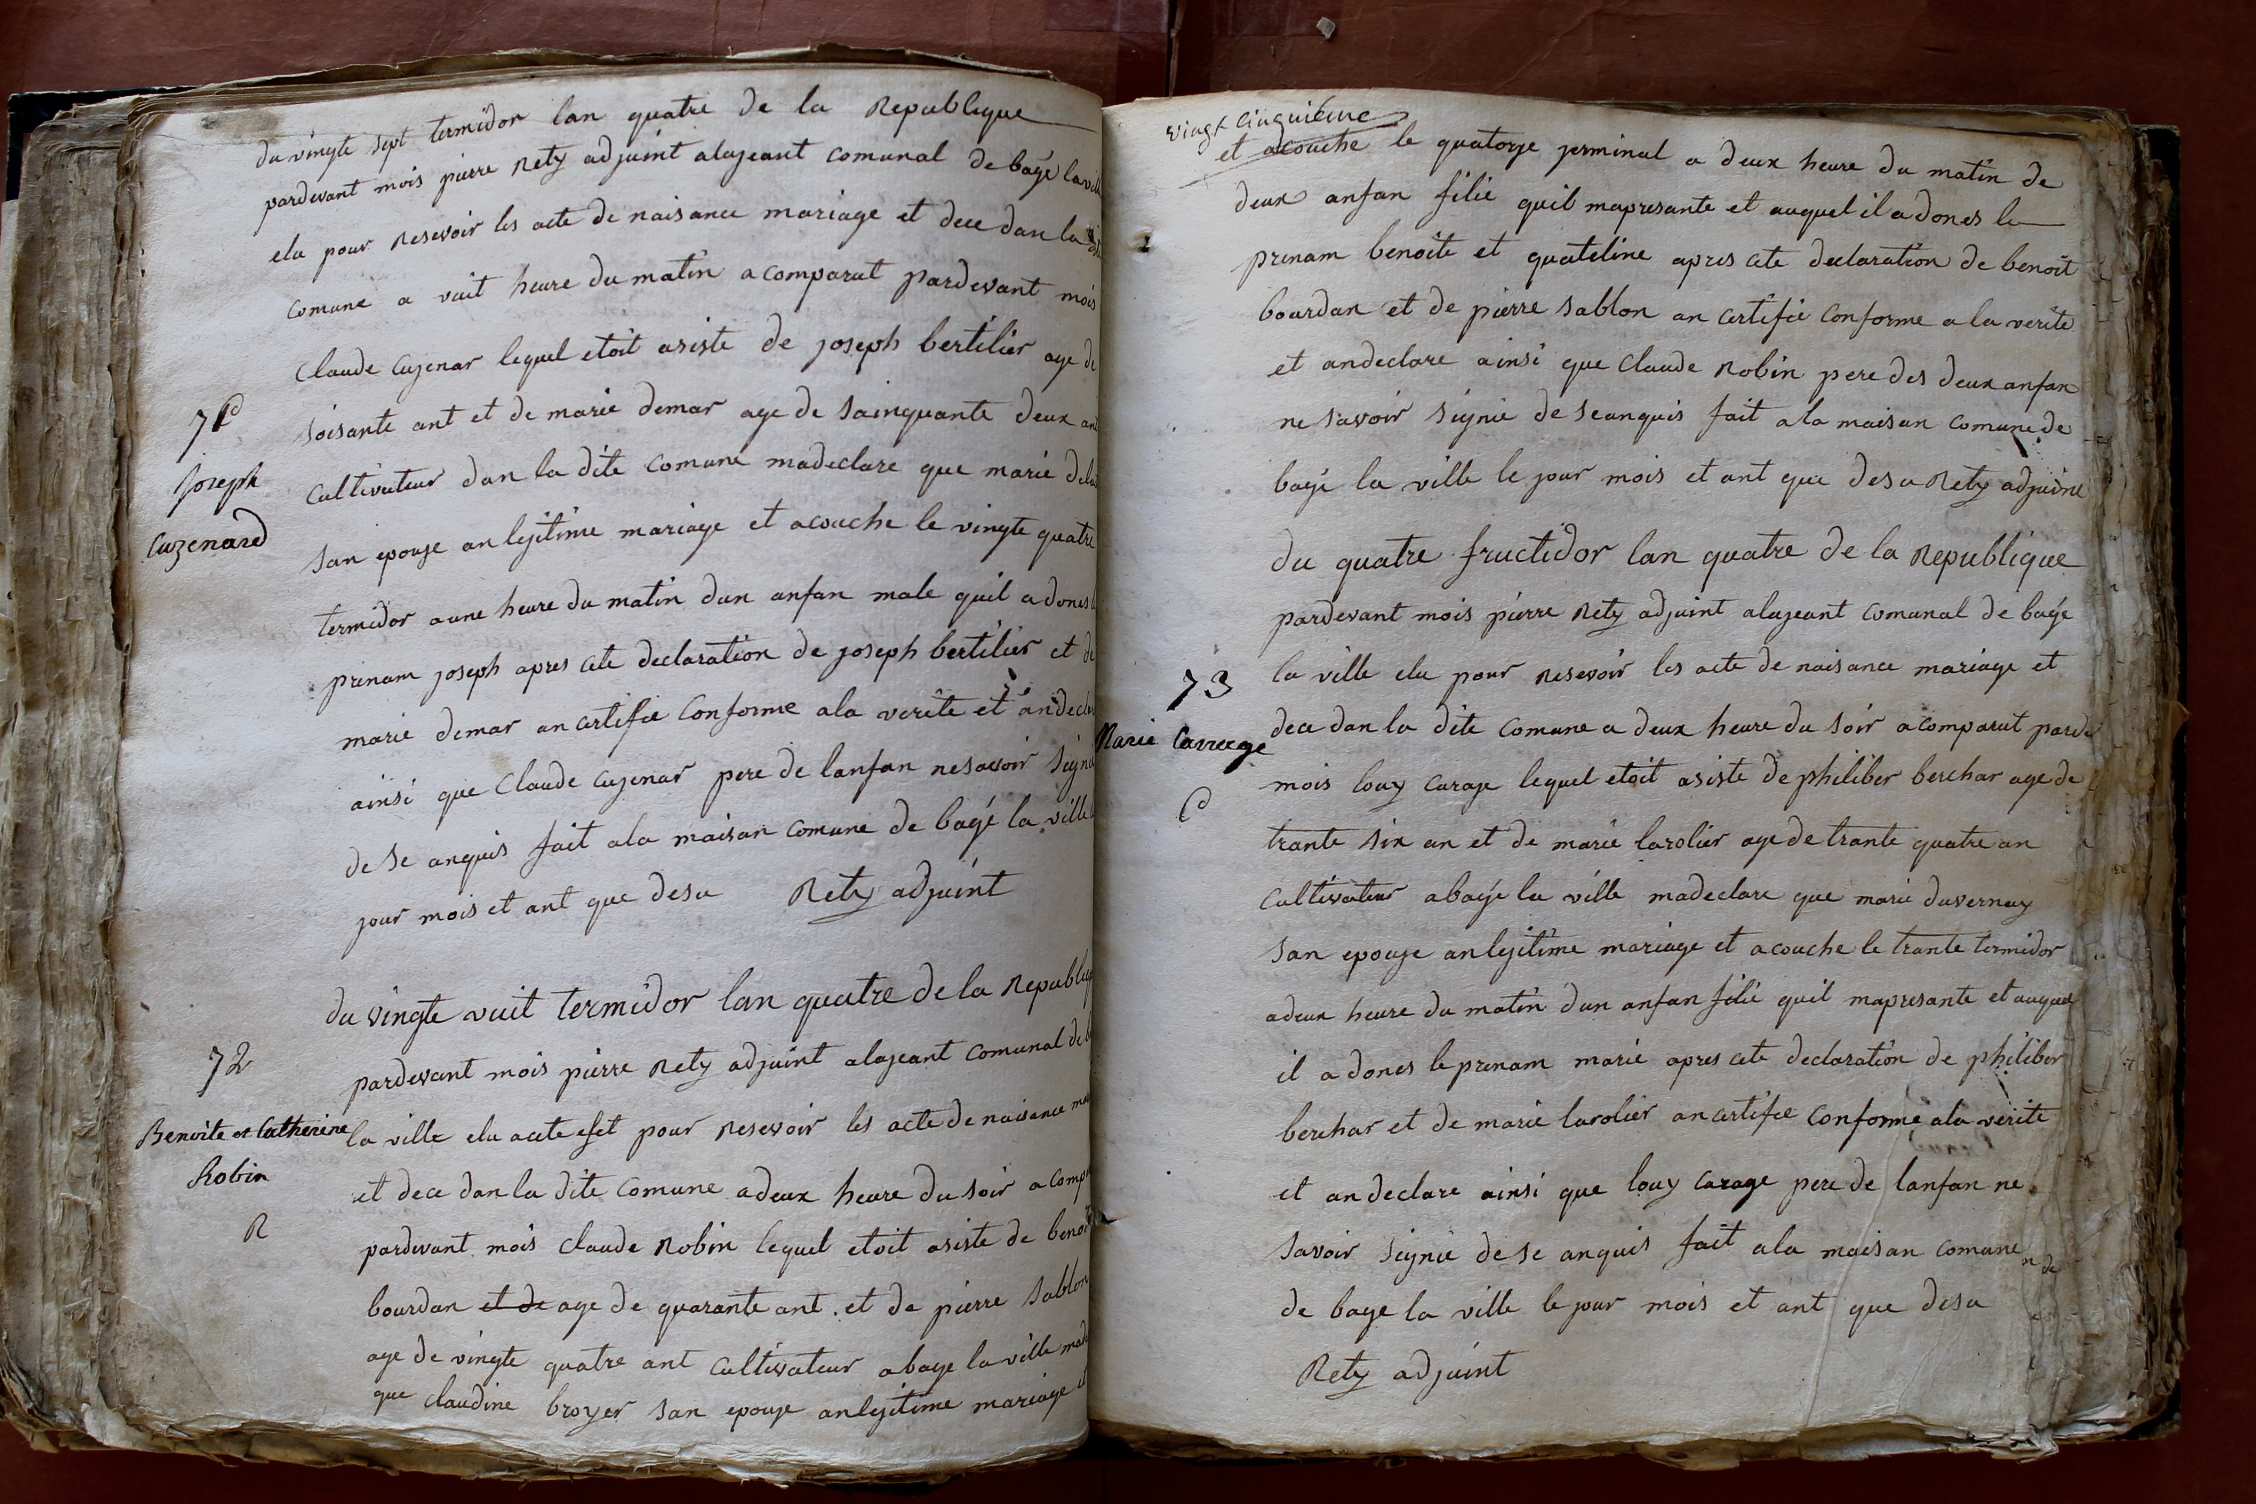 du vingte sept termidor lan quatre de la Republique
pardevant mois pierre Rety adjuint alajeant comunal de bagé la ville
elu pour Resevoir les acte de naisance mariage et dece dan la dite
comune a vuit heure du matin a comparut pardevant mois
Claude Cuzenar lequel etoit asiste de joseph bertilier age de
71
soisante ant et de marie demar age de sainquante deux ant
Joseph
Cuzenard
cultivateur dan la dite comune madeclare que marie
san epouze an lejitime mariage et acouche le vingte quatre
termidor aune heure du matin dun anfan male quil a dones
prenam joseph apres cete declaration de joseph bertilier et de
marie demar an certifie conforme ala verite et an declare
ainsi que Claude Cuzenar pere de lanfan ne savoir signie
de se anquis fait ala maisan comune de bagé la ville
jour mois et ant que desu Rety adjuint
du vingte vuit termidor lan quatre de la Republique
72
pardevant mois pierre Rety adjuint alajeant comunal de
Benoite et Catherine
Robin
R
la ville elu acete efet pour Resevoir les acte de naisance
et dece dan la dite comune adeux heure du soir a
pardevant mois Claude Robin lequel etoit asiste de benoit
bourdan et de age de quarante ant et de pierre sablon
age de vingte quatre ant cultivateur abage la ville
que claudine broyer san epouze anlejitime mariage
vingt cinquieme
et acouche le quatorze jerminal a deux heure du matin de
deux anfan filie quil mapresante et auquel il a dones le
prenam benoite et quateline apres cete declaration de benoit
bourdan et de pierre sablon an certifie conforme a la verite
et andeclare ainsi que Claude Robin pere des deux anfan
ne savoir signie de seanquis fait ala maisan comune de
bagé la ville le jour mois et ant que desu Rety adjuint
du quatre fructidor lan quatre de la Republique
pardevant mois pierre Rety adjuint alajeant comunal de bagé
73
la ville elu pour Resevoir les acte de naisance mariage et
Marie Carrage
C
dece dan la dite comune a deux heure du soir acomparut parde
mois louy carage lequel etoit asiste de philiber berchar age de
trante six an et de marie larolier age de trante quatre an
cultivateur abagé la ville madeclare que marie duvernay
san epouze anlejitime mariage et acouche le trante termidor
adeux heure du matin dun anfan filie quil mapresante et auquel
il a dones le prenam marie apres cete declaration de philiber
berchar et de marie larolier an certifie conforme ala verite
et an declare ainsi que louy carage pere de lanfan ne
savoir signie de se anquis fait ala maisan comune
de bage la ville le jour mois et ant que desu
Rety adjuint